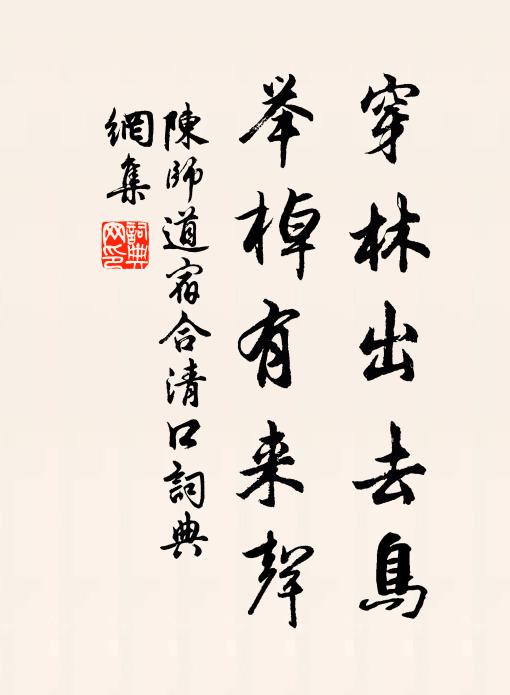 穿林出去鳥
举棹有来聲
陳師道宿合清口詞典
網集
詞典网印